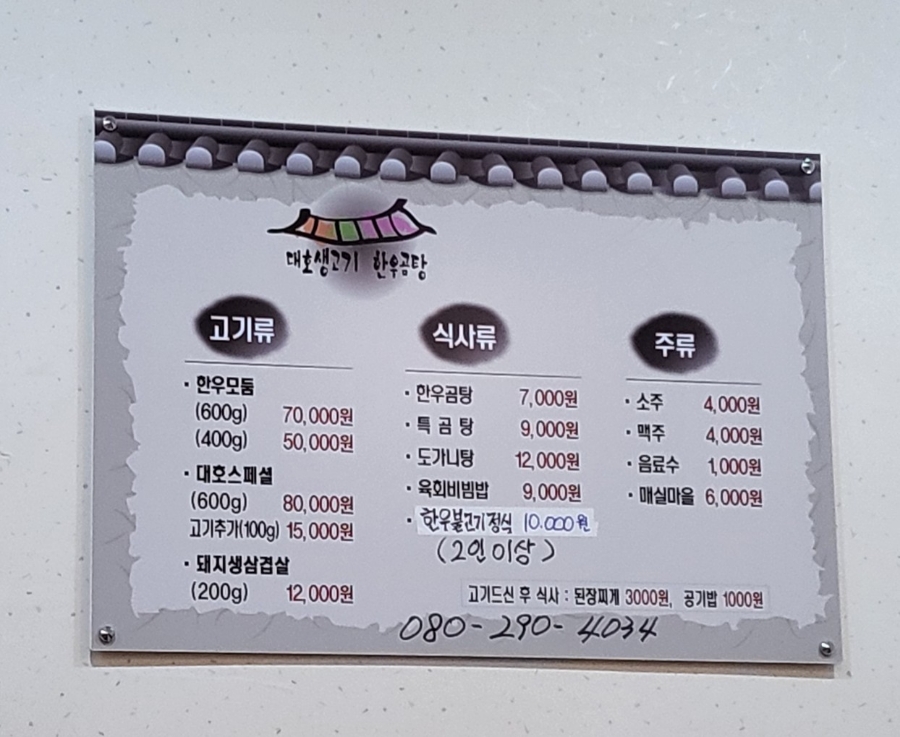 대호생고기 한우곰탕
고기류
· 한우모둠
(600g) 70,000원
(400g) 50,000원
· 대호스페셜
(600g) 80,000원
고기추가(100g) 15,000원
· 돼지생삼겹살
(200g) 12,000원
식사류
· 한우곰탕 7,000원
· 특 곰 탕 9,000원
· 도가니탕 12,000원
· 육회비빔밥 9,000원
· 한우불고기정식 10.000원
(2인 이상)
주류
· 소주 4,000원
· 맥주 4,000원
· 음료수 1,000원
· 매실마을 6,000원
고기드신 후 식사 : 된장찌게 3000원, 공기밥 1000원
080-290-4034